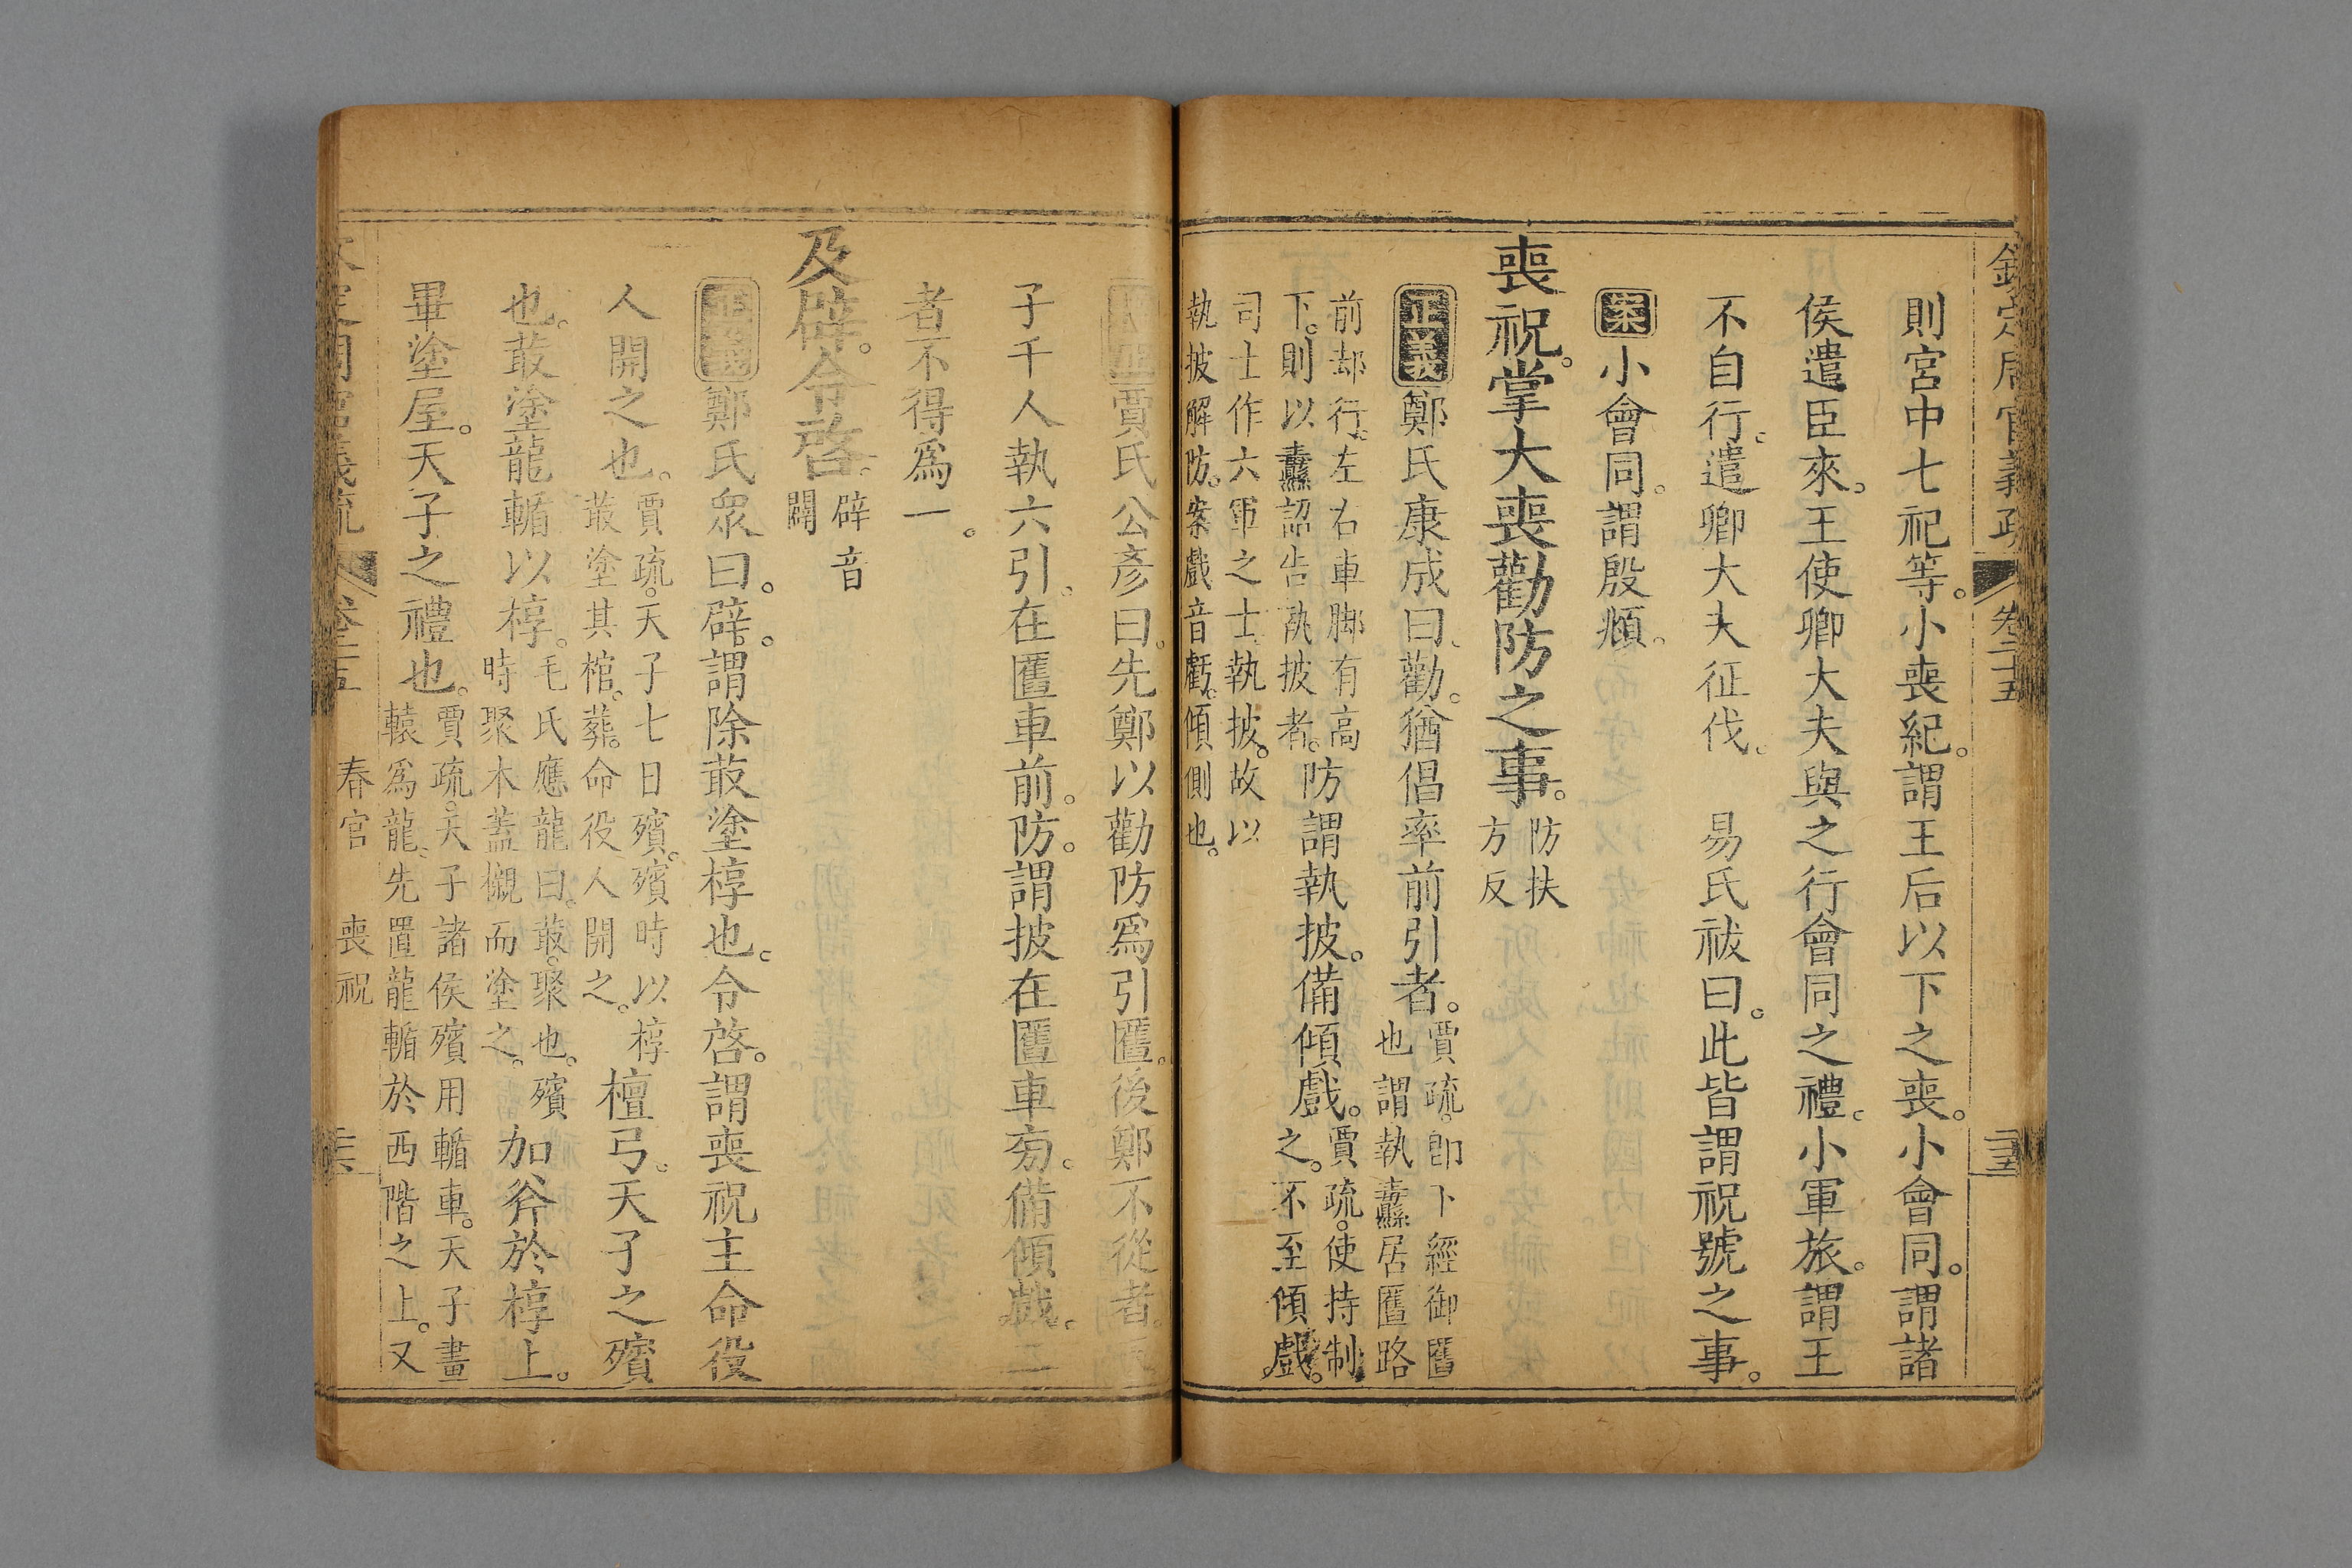 欽定周官義疏 卷二十五
則宮中七祀等。小喪紀。謂王后以下之喪。小會同。謂諸
侯遣臣來。王使卿大夫與之行會同之禮。小軍旅。謂王
不自行。遣卿大夫征伐。 易氏祓曰。此皆謂祝號之事。
案小會同。謂殷頫。
喪祝。掌大喪勸防之事。防扶
方反
正義鄭氏康成曰。勸。猶倡率前引者。賈疏。即下經御匶
也謂執纛居匶路
前却行。左右車脚有高
下。則以纛詔告執披者。防謂執披。備傾戲。賈疏。使持制
之。不至傾戲。
司士作六軍之士執披。故以
執披解防。案戲音虧。傾側也。
賈氏公彥曰。先鄭以勸防爲引匶。後鄭不從者。
子千人執六引。在匶車前。防。謂披在匶車旁。備傾戲。二
者不得爲一。
及辟。令啓。辟音
闢
正義鄭氏衆曰。辟。謂除菆塗椁也。令啓。謂喪祝主命役
人開之也。賈疏。天子七日殯。殯時以椁
菆塗其棺。葬。命役人開之。檀弓。天子之殯
也。菆塗龍輴以椁。毛氏應龍曰。菆。聚也。殯
時聚木蓋櫬而塗之。加斧於椁上。
畢塗屋。天子之禮也。賈疏。天子諸侯殯用輴車。天子畫
轅爲龍。先置龍輴於西階之上。又
周官義疏 卷二十五 春官 喪祝